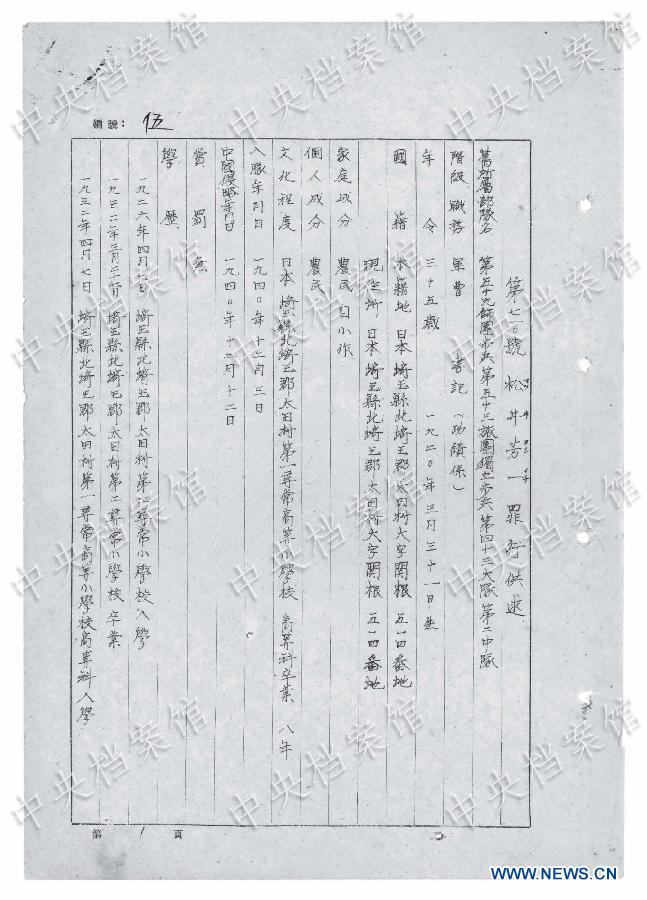 編號： 伍
第七一〇號 松井芳一 罪行供述
舊所屬部隊名 第五十九師團步兵第五十三旅團獨立步兵第四十三大隊第二中隊
階級、職務 軍曹 書記（功績係）
年 令 三十五歲 一九二〇年三月三十一日生
國 籍 本籍地 日本埼玉縣北埼玉郡太田村大字関根 五一四番地
現住所、日本埼玉縣北埼玉郡太田村大字関根 五一四番地
家庭成分 農民 自小作
個人成分 農民
文化程度 日本埼玉縣北埼玉郡太田村第一尋常高等小學校 高等科卒業 八年
入隊年月日 一九四〇年十二月三日
中國侵略年月日 一九四〇年十二月十二日
賞 罰 無
學 歷
一九二六年四月 日 埼玉縣北埼玉郡太田村第二尋常小學校入學
一九三二年三月二十 日 埼玉縣北埼玉郡太田村第二尋常小學校卒業
一九三二年四月七日 埼玉縣北埼玉郡太田村第一尋常高等小學校高等科入學
第 1 頁
中央档案馆
中央档案馆
中央档案馆
中央档案馆
中央档案馆
中央档案馆
中央档案馆
中央档案馆
中央档案馆
WWW.NEWS.CN